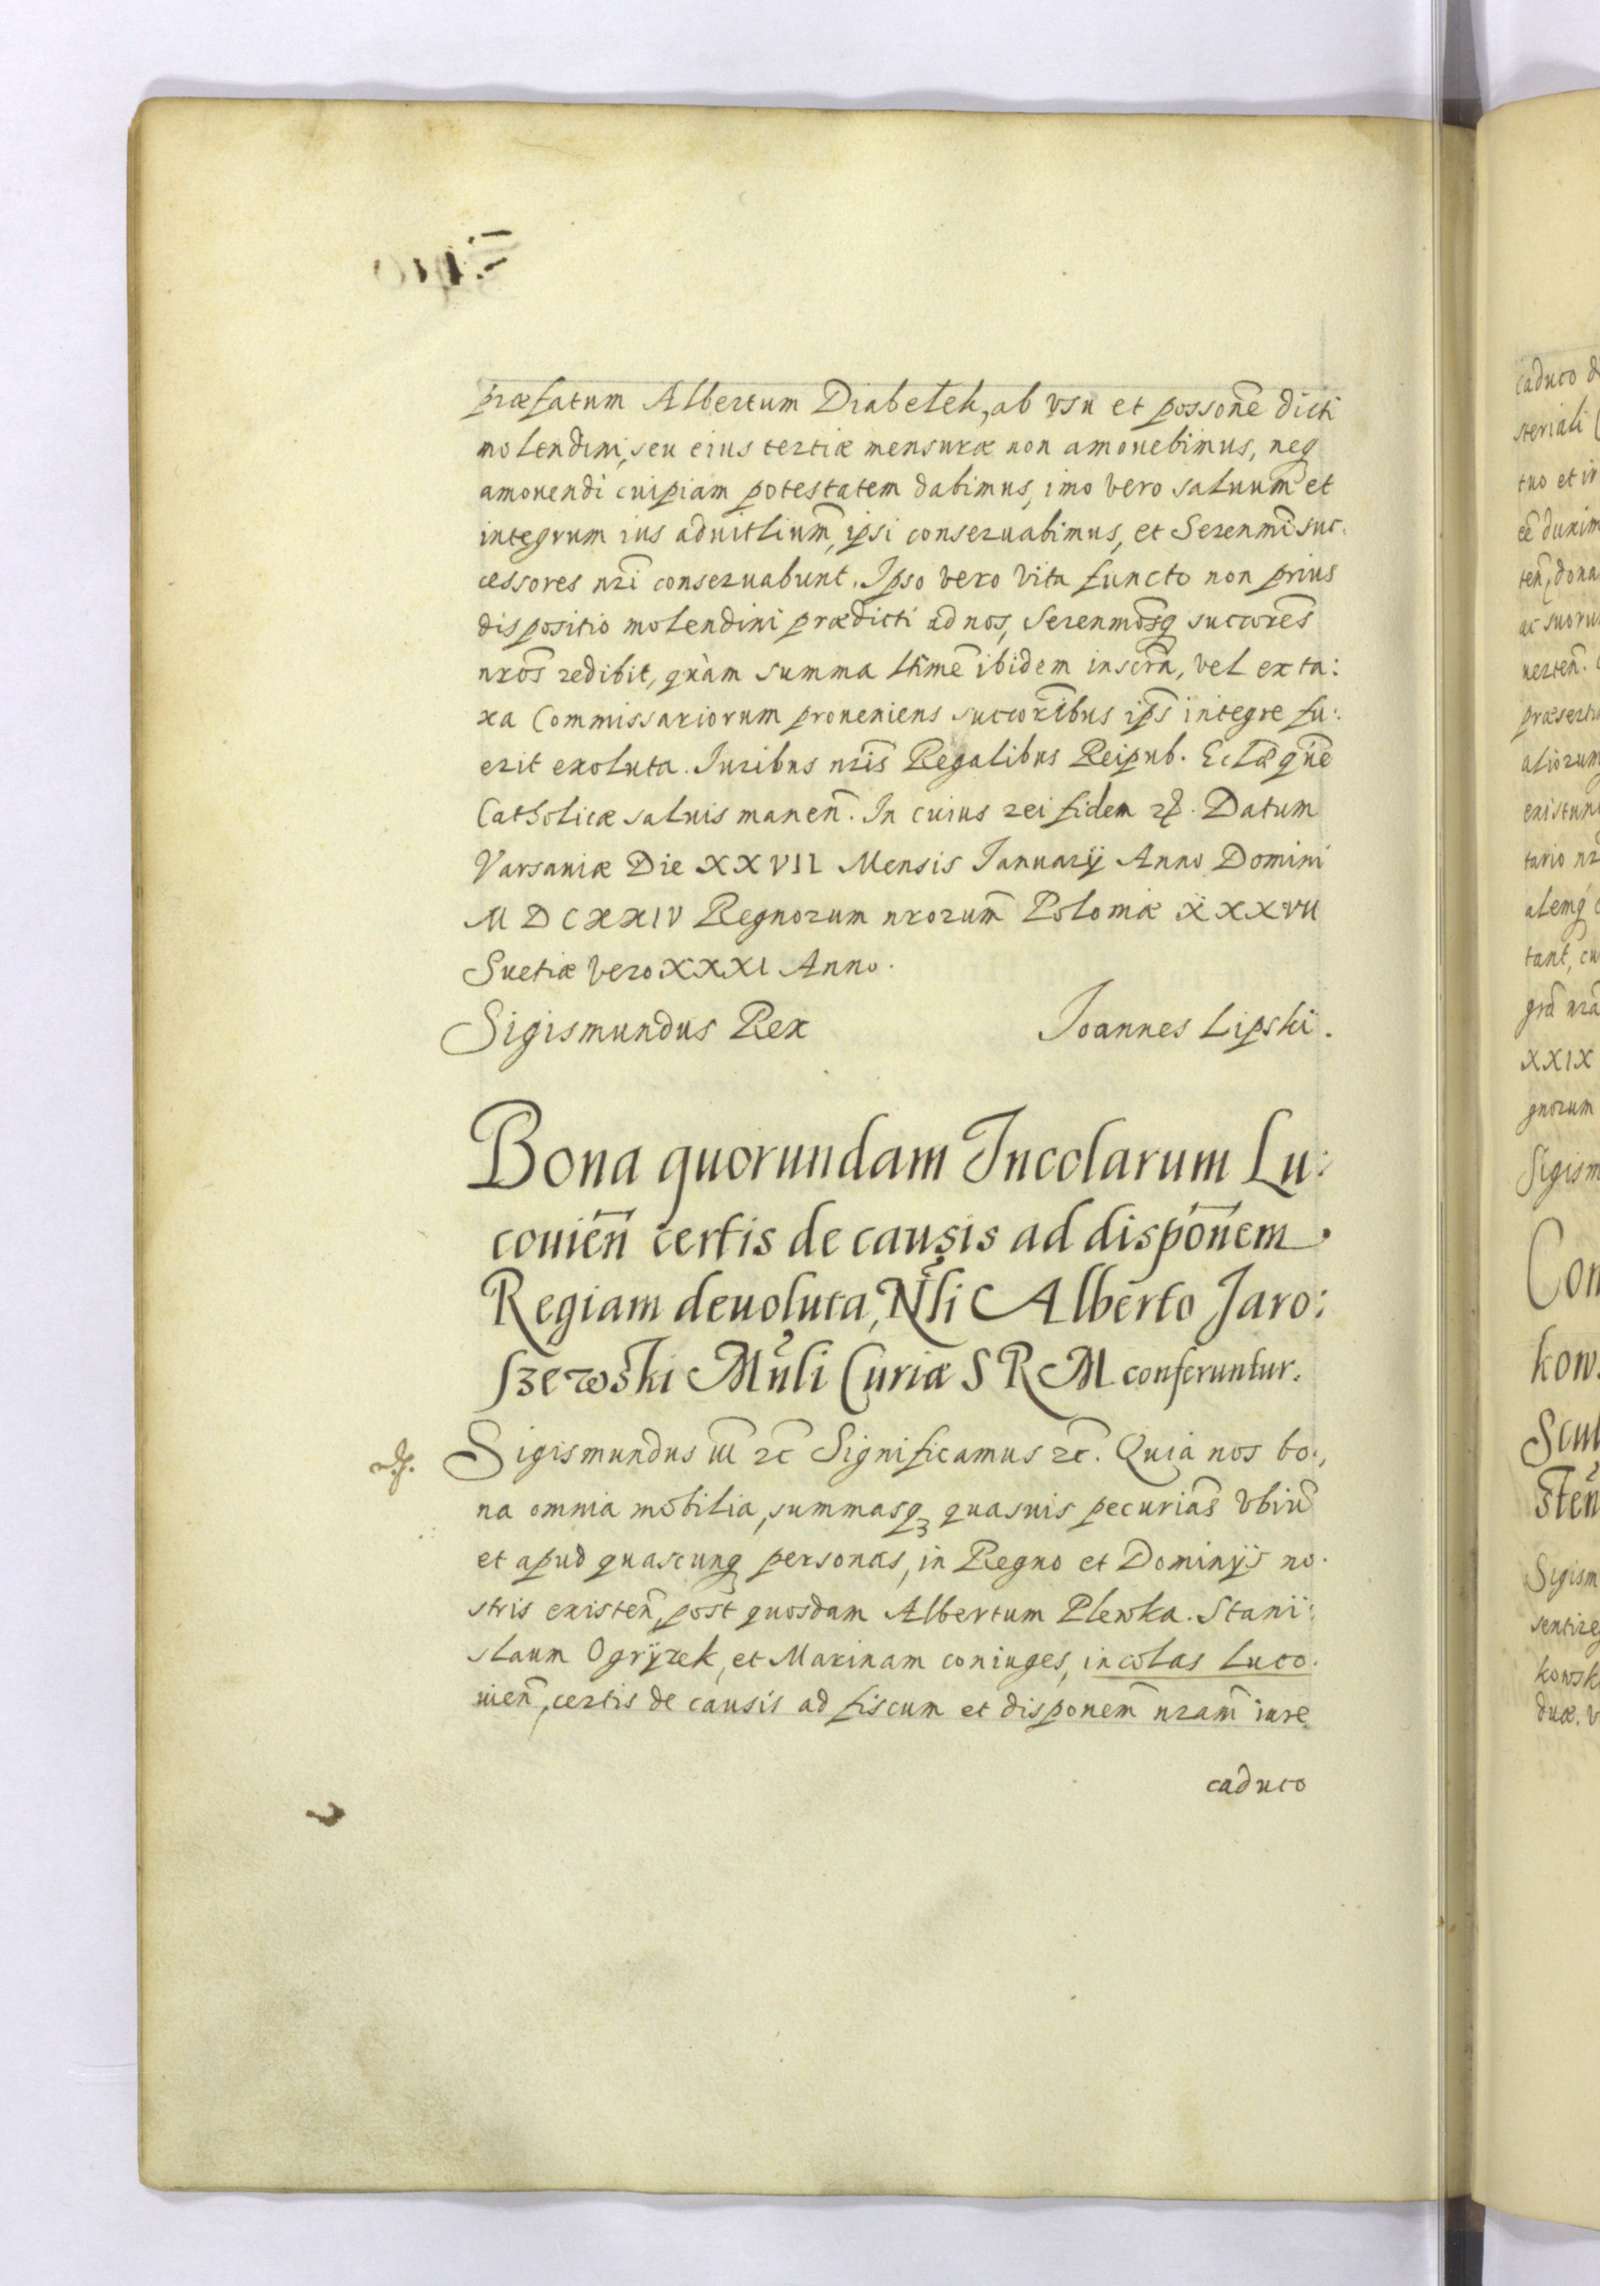 præfatum Albertum Diabełek, ab vsu et possonẽ dicti
molendini, seu eius tertiæ mensuræ non amouebimus, neq
amouendi cuipiam potestatem dabimus, imo vero saluum̃ et
integrum ius aduitlium̃, ipsi conseruabimus, et Serenmĩ suc.
cessores nrĩ conseruabunt. Ipso vero vita functo non prius
dispositio molendini prædicti ad nos, Serenmõsq succorẽs
nrõs redibit, quàm summa ltimẽ ibidem inscrã, vel ex ta:
xa Commissariorum proueniens succorĩbus ipĩs integre fu:
erit exoluta. Iuribus nrĩs Regalibus Reipub. Eclæ̃ quẽ
Catholicæ saluis maneñ. In cuius rei fidem etc. Datum
Varsauiæ Die XXVII Mensis Januarij Anno Domini
MDCXXIV Regnorum nrorum̃ Poloniæ XXXVII
Suetiæ vero XXXI Anno.
Sigismundus Rex Joannes Lipski.
Bona quorundam Incolarum Lu:
couieñ certis de causis ad dispoñem
Regiam deuoluta, Nli Alberto Jaro:
szewski Muli Curiæ S R M conferuntur.
Sigismundus III etc Significamus etc. Quia nos bo:
na omnia mobilia, summasq quasuis pecuriãs vbiũ
et apud quascunq personas, in Regno et Dominijs no.
stris existeñ, post quosdam Albertum Plewka. Stani:
slaum Ogryzek, et Marinam coniuges, incolas Luco.
uieñ, certis de causis ad fiscum et disponem̃ nram̃ iure
caduco